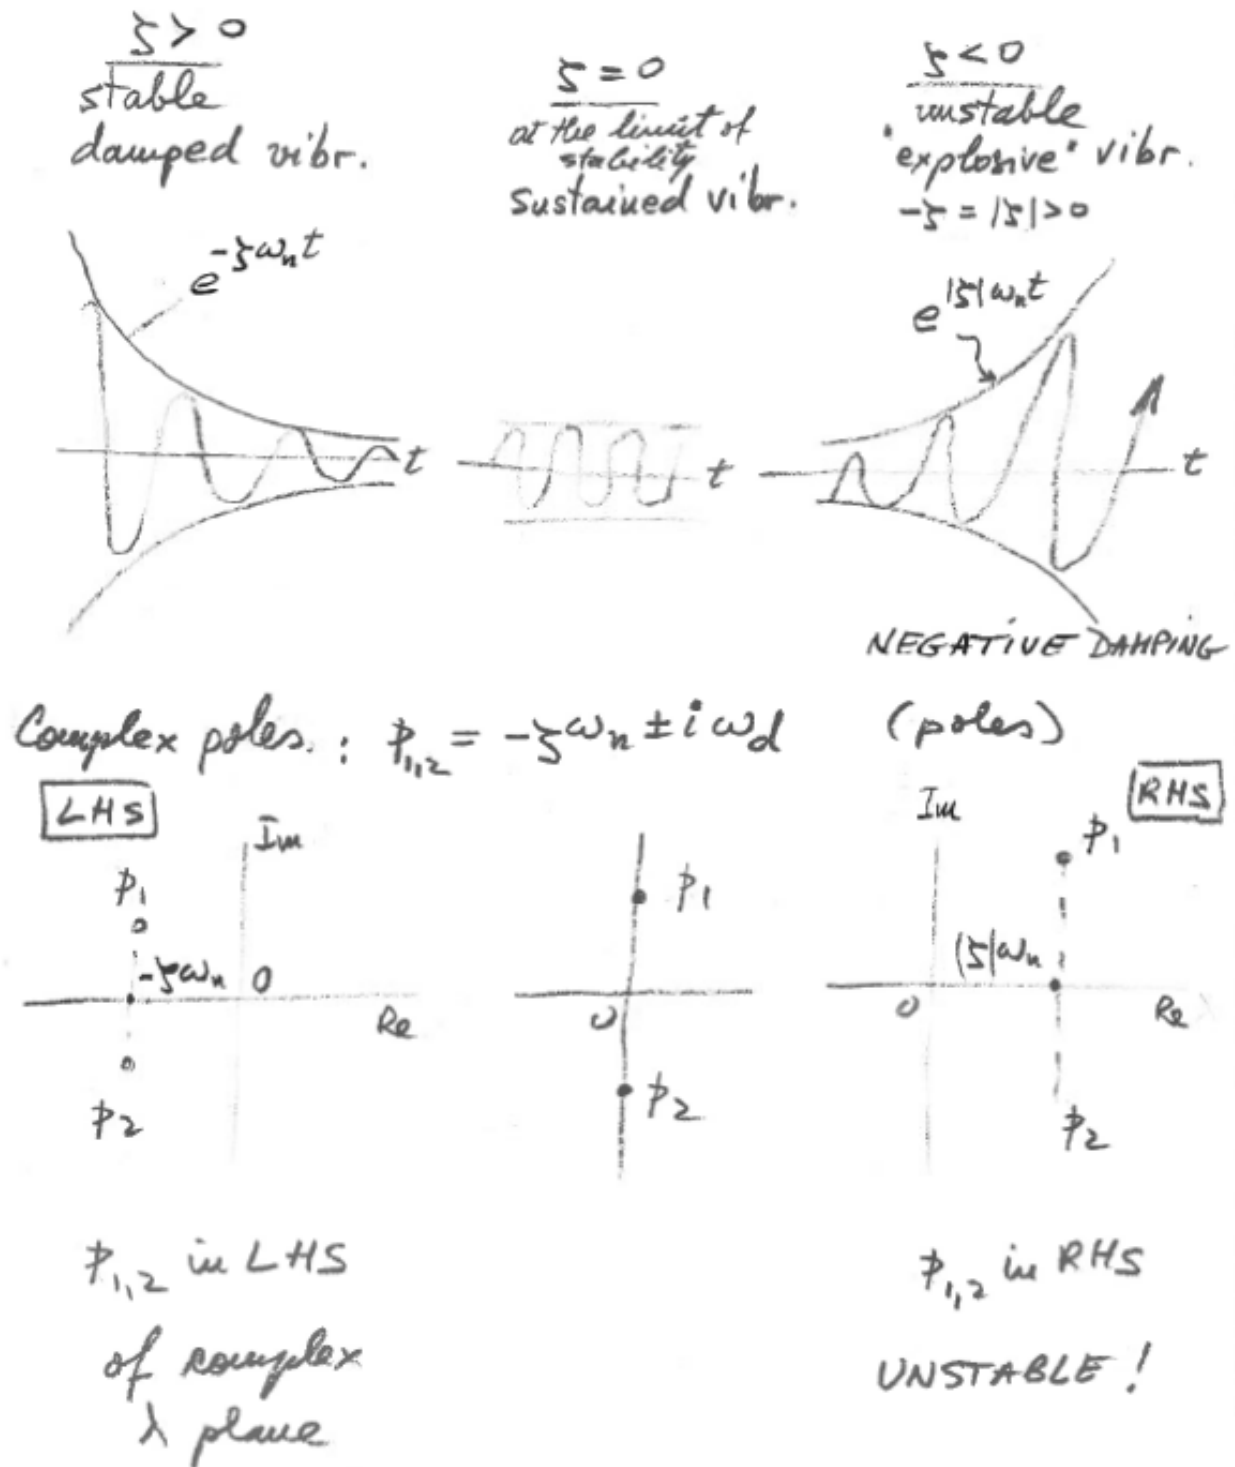 ζ > 0
stable
damped vibr.
ζ = 0
at the limit of
stability
sustained vibr.
ζ < 0
unstable
"explosive" vibr.
-ζ = |ζ| > 0
e^{-ζω_n t}
t
t
e^{|ζ|ω_n t}
t
NEGATIVE DAMPING
Complex poles : p_{1,2} = -ζω_n ± i ω_d (poles)
LHS
Im
p_1
-ζω_n
0
Re
p_2
p_1
0
p_2
RHS
Im
p_1
|ζ|ω_n
0
Re
p_2
p_{1,2} in LHS
of complex
λ plane
p_{1,2} in RHS
UNSTABLE !